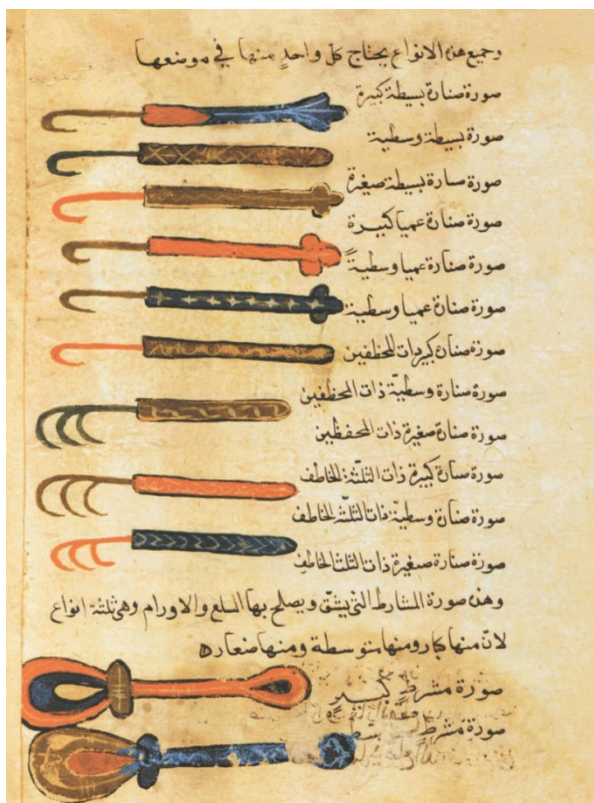 وجميع هذه الانواع يحتاج كل واحد منها في موضعها
صورة صنارة بسيطة كبيرة
صورة بسيطة وسطية
صورة صنارة بسيطة صغيرة
صورة صنارة عميا كبيرة
صورة صنارة عميا وسطيةً
صورة صنارة عميا وسطية
صورة صنارة كبيرة ذات المخطفين
صورة سنارة وسطيّة ذات المخطفين
صورة صنارة صغيرة ذات المخطفين
صورة سنارة كبيرة ذات الثلثة المخاطف
صورة صنارة وسطيّة ذات الثلثة المخاطف
صورة صنارة صغيرة ذات الثلث المخاطف
وهذه صورة المشارط التي يشق ويصلح بها السلع والاورام وهي ثلثة انواع
لانّ منها كبار ومنها متوسطة ومنها صغار
صورة مشرط كبير
صورة مشرط